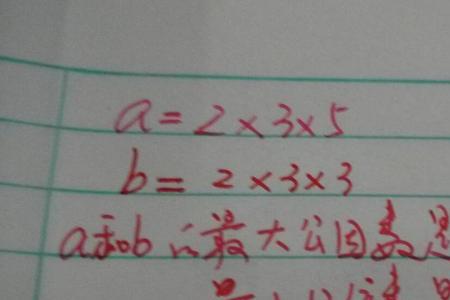 a=2×3×5
b=2×3×3
a和b的最大公因数是